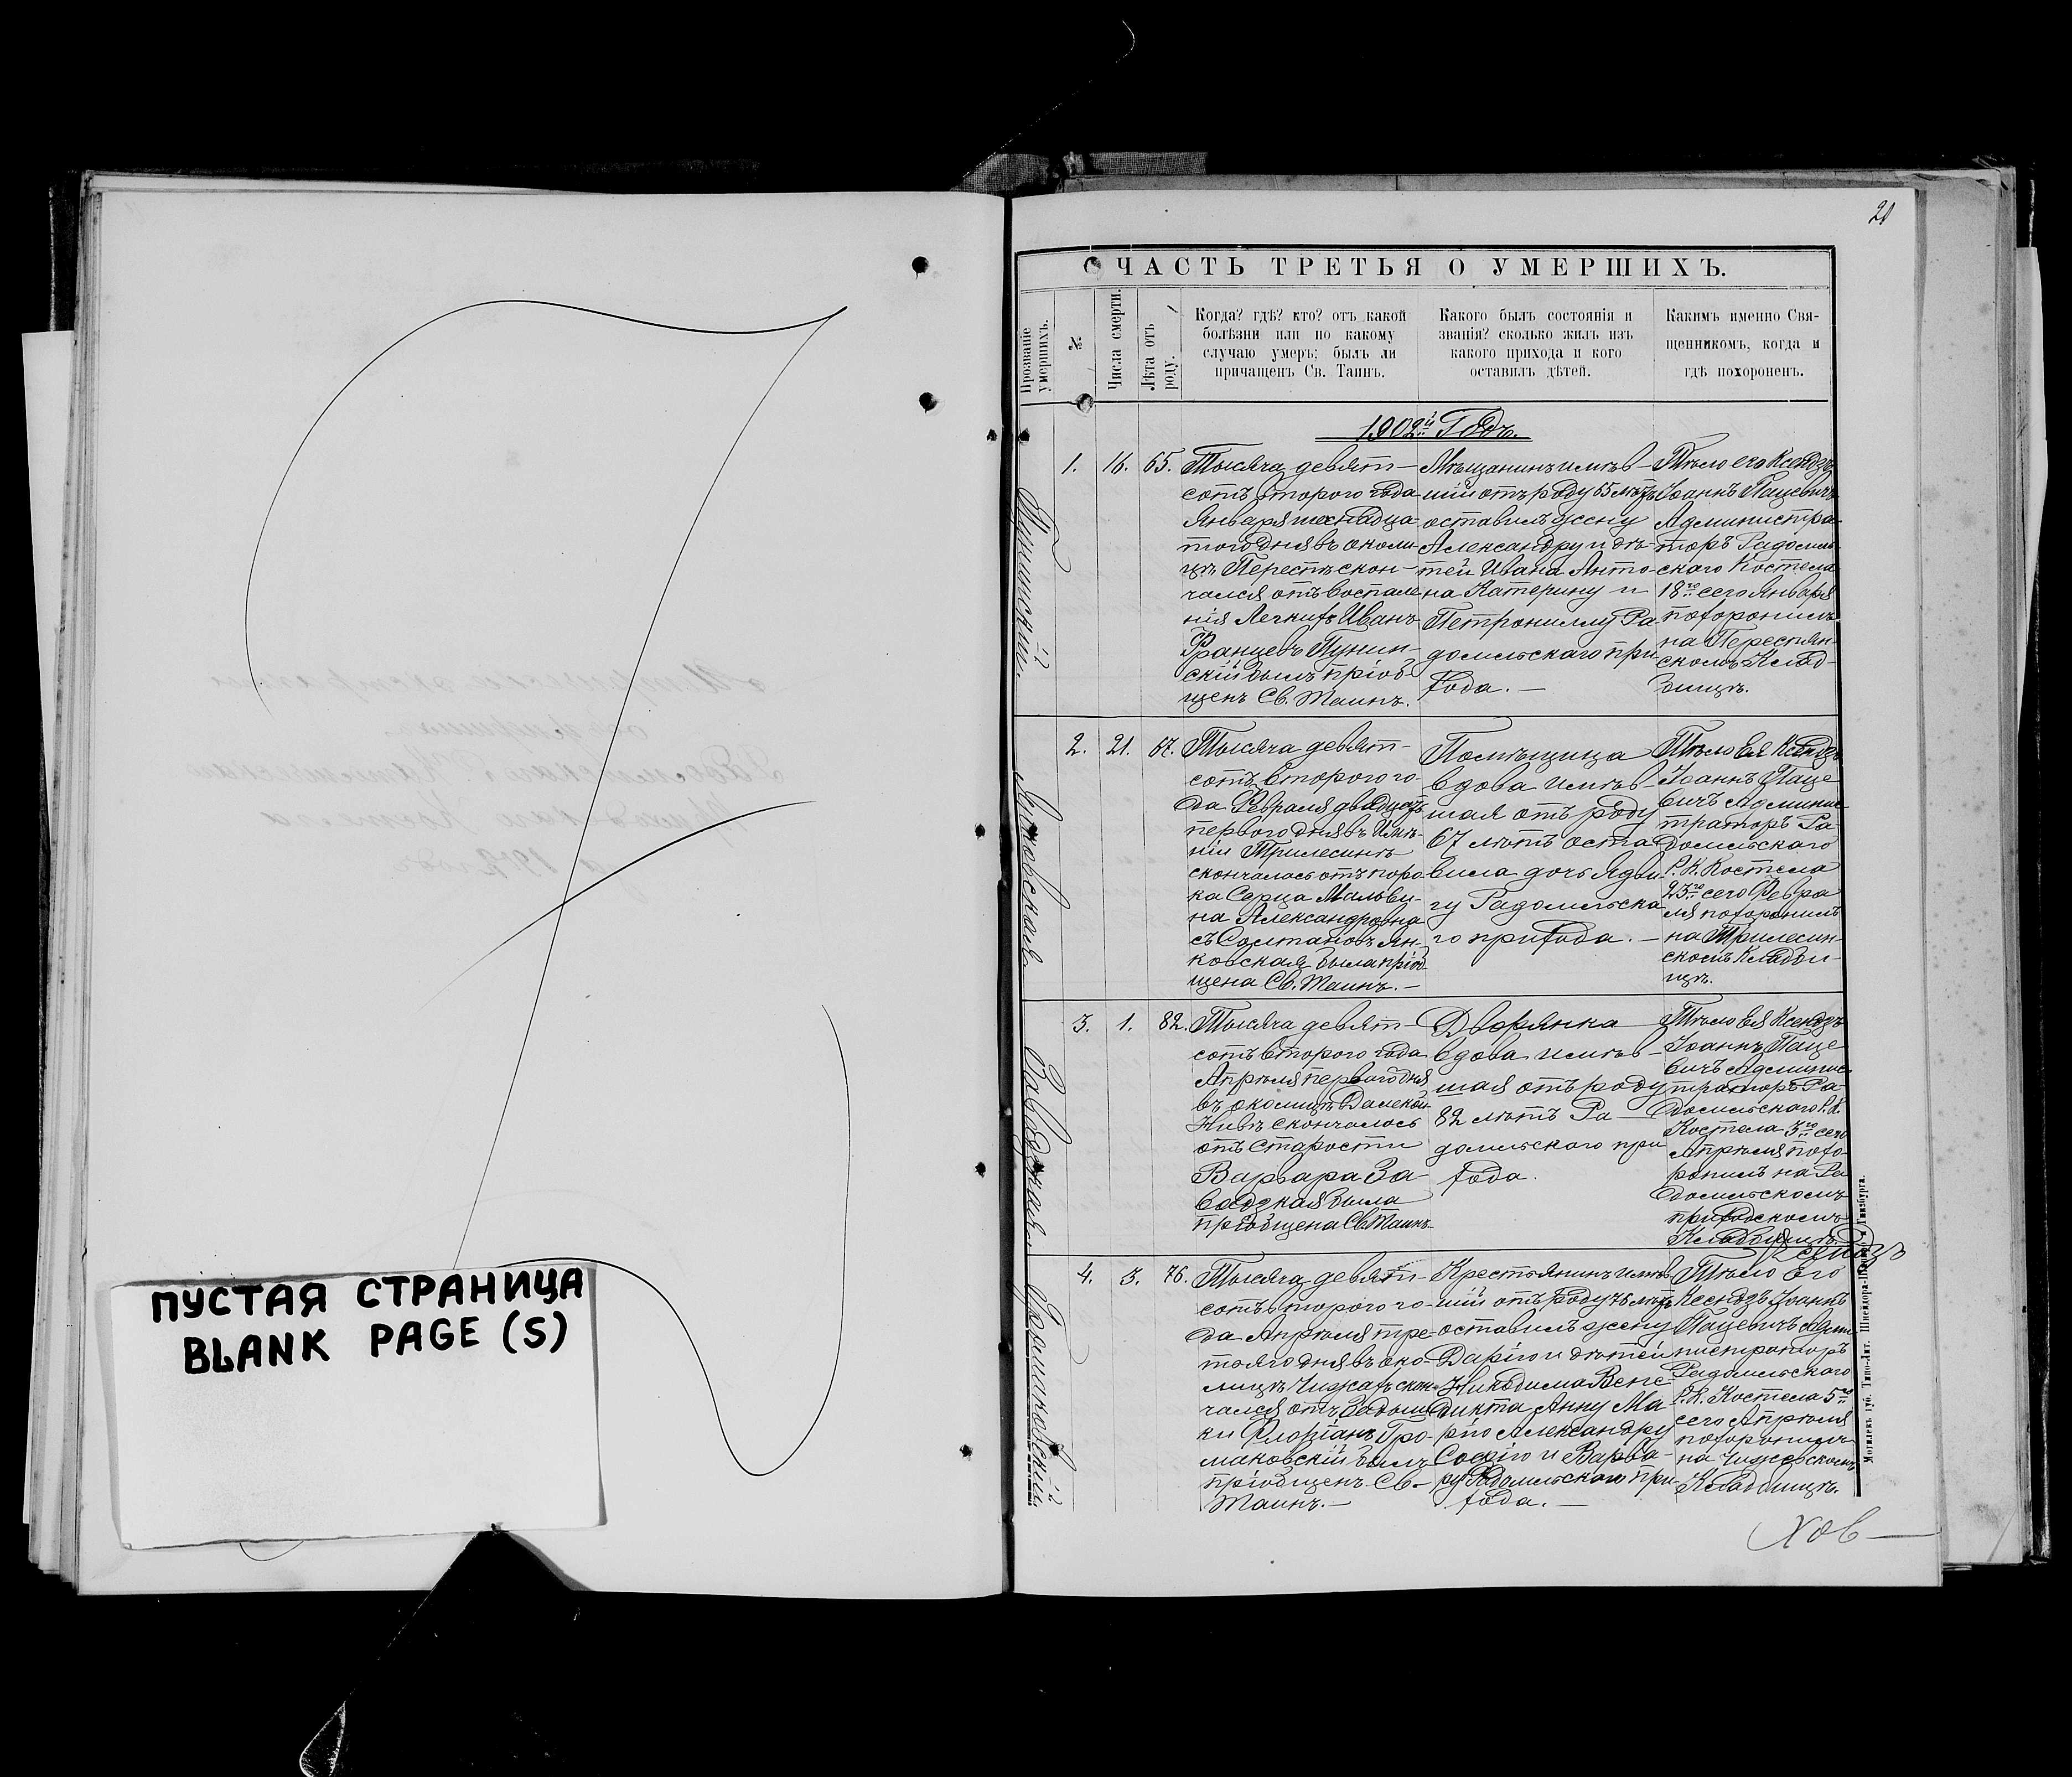 ПУСТАЯ СТРАНИЦА
BLANK PAGE (S)
ЧАСТЬ ТРЕТЬЯ О УМЕРШИХЪ.
Прозваніе умершихъ.
№
Числа смерти.
Лѣта отъ роду.
Когда? гдѣ? кто? отъ какой
болѣзни или по какому
случаю умеръ; былъ ли
причащенъ Св. Таинъ.
Какого былъ состоянія и
званія? сколько жилъ изъ
какого прихода и кого
оставилъ дѣтей.
Какимъ именно Свя-
щенникомъ, когда и
гдѣ похороненъ.
1902й Годъ.
Пунинскій.
1.
16.
65.
Тысяча девят-
сотъ второго года
Января шеснадца-
того дня въ околи-
цѣ Перестѣ скон-
чался отъ воспале
нія Легкихъ Иванъ
Францевъ Пунин-
скій былъ пріоб-
щенъ Св. Таинъ.
Мѣщанинъ имѣв-
шій отъ роду 65 лѣтъ
оставилъ жену
Александру и дѣ-
тей Ивана Анто-
на Катерину и
Петрониллу Ра
домльскаго при
хода.-
Тѣло его Ксендзъ
Іоаннъ Пацевичъ
Администра-
торъ Радомль-
скаго Костела
18го сего Января
похоронилъ
на Перестян-
скомъ Клад-
бищѣ.
Янковская
2.
21.
67.
Тысяча девят-
сотъ второго го-
да Февраля двадцать
перваго дня въ Имѣ-
ніи Трилесинѣ
скончалась отъ поро-
ка Серца Мальви-
на Александровна
съ Солтановъ Ян-
ковская, была пріоб
щена Св. Таинъ.-
Помѣщица
вдова имѣв-
шая отъ роду
67 лѣтъ оста
вила дочь Ядви-
гу Радомльска
го прихода.-
Тѣло Ея Ксендзъ
Іоаннъ Паце
вичъ Админис-
траторъ Ра-
домльскаго
Р. К. Костела
23го сего Февра
ля похоронилъ
на Трилесин-
скомъ Кладби-
щѣ.
Завадзкая.
3.
1.
82.
Тысяча девят-
сотъ второго года
Апрѣля перваго дня
въ околицѣ Далекой
Нивѣ скончалось
отъ Старости
Варвара За-
вадзкая была
пріобщена Св. Таинъ.
Дворянка
вдова имѣв-
шая отъ роду
82 лѣтъ Ра-
домльскаго при
хода.
Тѣло Ея Ксендзъ
Іоаннъ Паце
вичъ Админис
траторъ Ра-
домльскаго Р. К.
Костела 3го сего
Апрѣля похо-
ронилъ на Ра
домльскомъ
приходскомъ
Кладбищѣ.
Ксендзъ
Громаковскій
4.
3.
76.
Тысяча девят-
сотъ второго го-
да Апрѣля тре-
тяго дня въ око-
лицѣ Чижахъ скон-
чался отъ Задыш
ки Флоріанъ Гро-
маковскій былъ
пріобщенъ Св-
Таинъ.-
Крестьянинъ имѣв-
шій отъ роду 76 лѣтъ
оставилъ жену
Дарію и дѣтей
Никодима Вене
дикта Анну Ма-
рію Александру
Софію и Варва-
ру Радомльскаго при-
хода.-
Тѣло Его
Ксендзъ Іоаннъ
Пацевичъ адми
нистраторъ
Радомльскаго
Р. К. Костела 5го
сего Апрѣля
похоронилъ
на Чижевскомъ
Кладбищѣ.
Могилевъ губ. Типо-Лит.